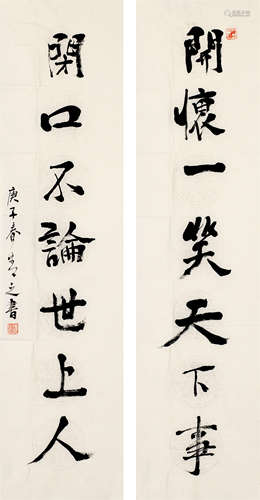 開懷一笑天下事
閉口不論世上人
庚子春 之書